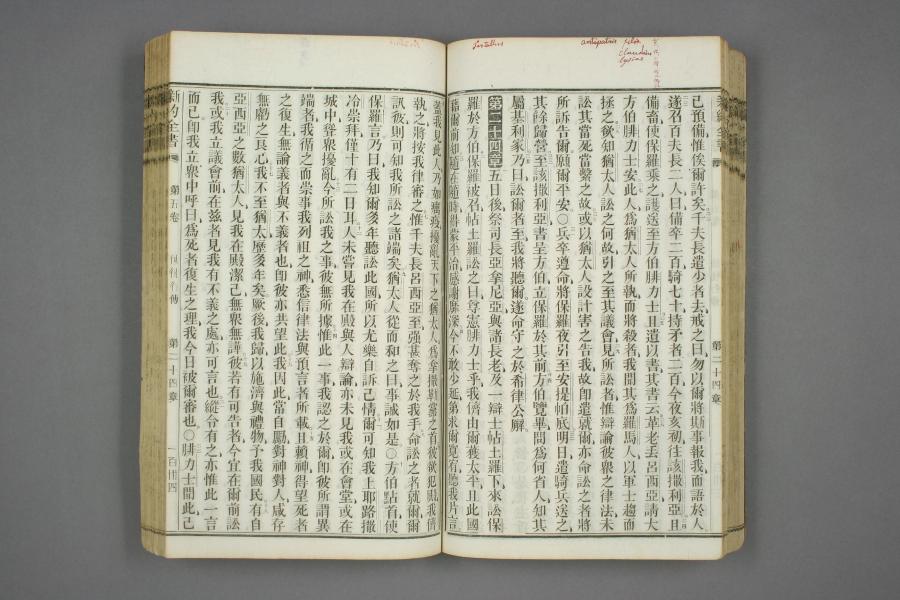 Tertullus
antipatris
Felix
Claudius
Lysias
第二十四章
己預備惟俟爾許矣千夫長遣少者去戒之曰勿以爾將斯事報我而語於人
遂召百夫長二人曰備卒二百騎七十持矛者二百今夜亥初往該撒利亞且
備畜使保羅乘之護送至方伯腓力士且遺以書其書云革老丟呂西亞請大
方伯腓力士安此人為猶太人所執而將殺者我聞其為羅馬人以軍士趨而
拯之欲知猶太人訟之何故引之至其議會見所訟者惟辯論彼眾之律法未
訟其當死當繫之故或以猶太人設計害之告我故即遣就爾亦命訟之者將
所訴告爾願爾平安○兵卒遵命將保羅夜引至安提帕底明日遣騎兵送之
其餘歸營至該撒利亞書呈方伯立保羅於其前方伯覽畢問為何省人知其
屬基利家乃曰訟爾者至我將聽爾遂命守之於希律公廨
第二十四章五日後祭司長亞拿尼亞與諸長老及一辯士帖土羅下來訟保
羅於方伯保羅被召帖土羅訟之曰尊憲腓力士乎我儕由爾獲太平且此國
賴爾前知隨在隨時得蒙平治感謝靡深今不敢少延第求爾寬宥聽我片言
蓋我見此人乃如瘟疫擾亂天下之猶太人為拿撒勒黨之首彼欲犯殿我儕
執之將按我律審之惟千夫長呂西亞至強甚奪之於我手命訟之者就爾爾
訊彼則可知我所訟之諸端矣猶太人從而和之曰事誠如是○方伯點首使
保羅言乃曰我知爾多年聽訟此國所以尤樂自訴己情爾可知我上耶路撒
冷崇拜僅十有二日耳人未嘗見我在殿與人辯論亦未見我或在會堂或在
城中聳眾擾亂今所訟我之事彼無所據惟此一事我認之於爾即彼所謂異
端者我循之而崇事我列祖之神悉信律法與預言者所載且賴神得望死者
之復生無論義者與不義者也即彼亦共望此我因此當自勵對神對人咸存
無虧之良心我不至猶太歷多年矣厥後我歸以施濟與禮物予我國民有自
亞西亞之數猶太人見我在殿潔己無眾無譁彼若有可告者今宜在爾前訟
我或我立議會前在茲者見我有不義之處亦可言也縱令有之亦惟此一言
而已即我立眾中呼曰為死者復生之理我今日被爾審也○腓力士聞此己
新約全書
第五卷
第二十四章
一百卅四